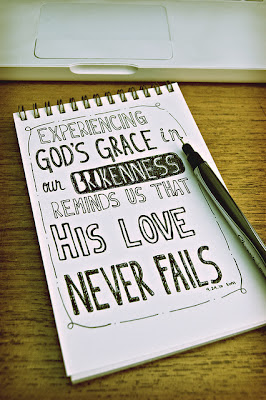 EXPERIENCING
GOD'S GRACE in
our BROKENNESS
REMINDS US THAT
HIS LOVE
NEVER FAILS